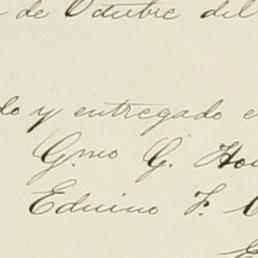 de Octubre del
do y entregado
Gmo G. Ho
Eduino F.